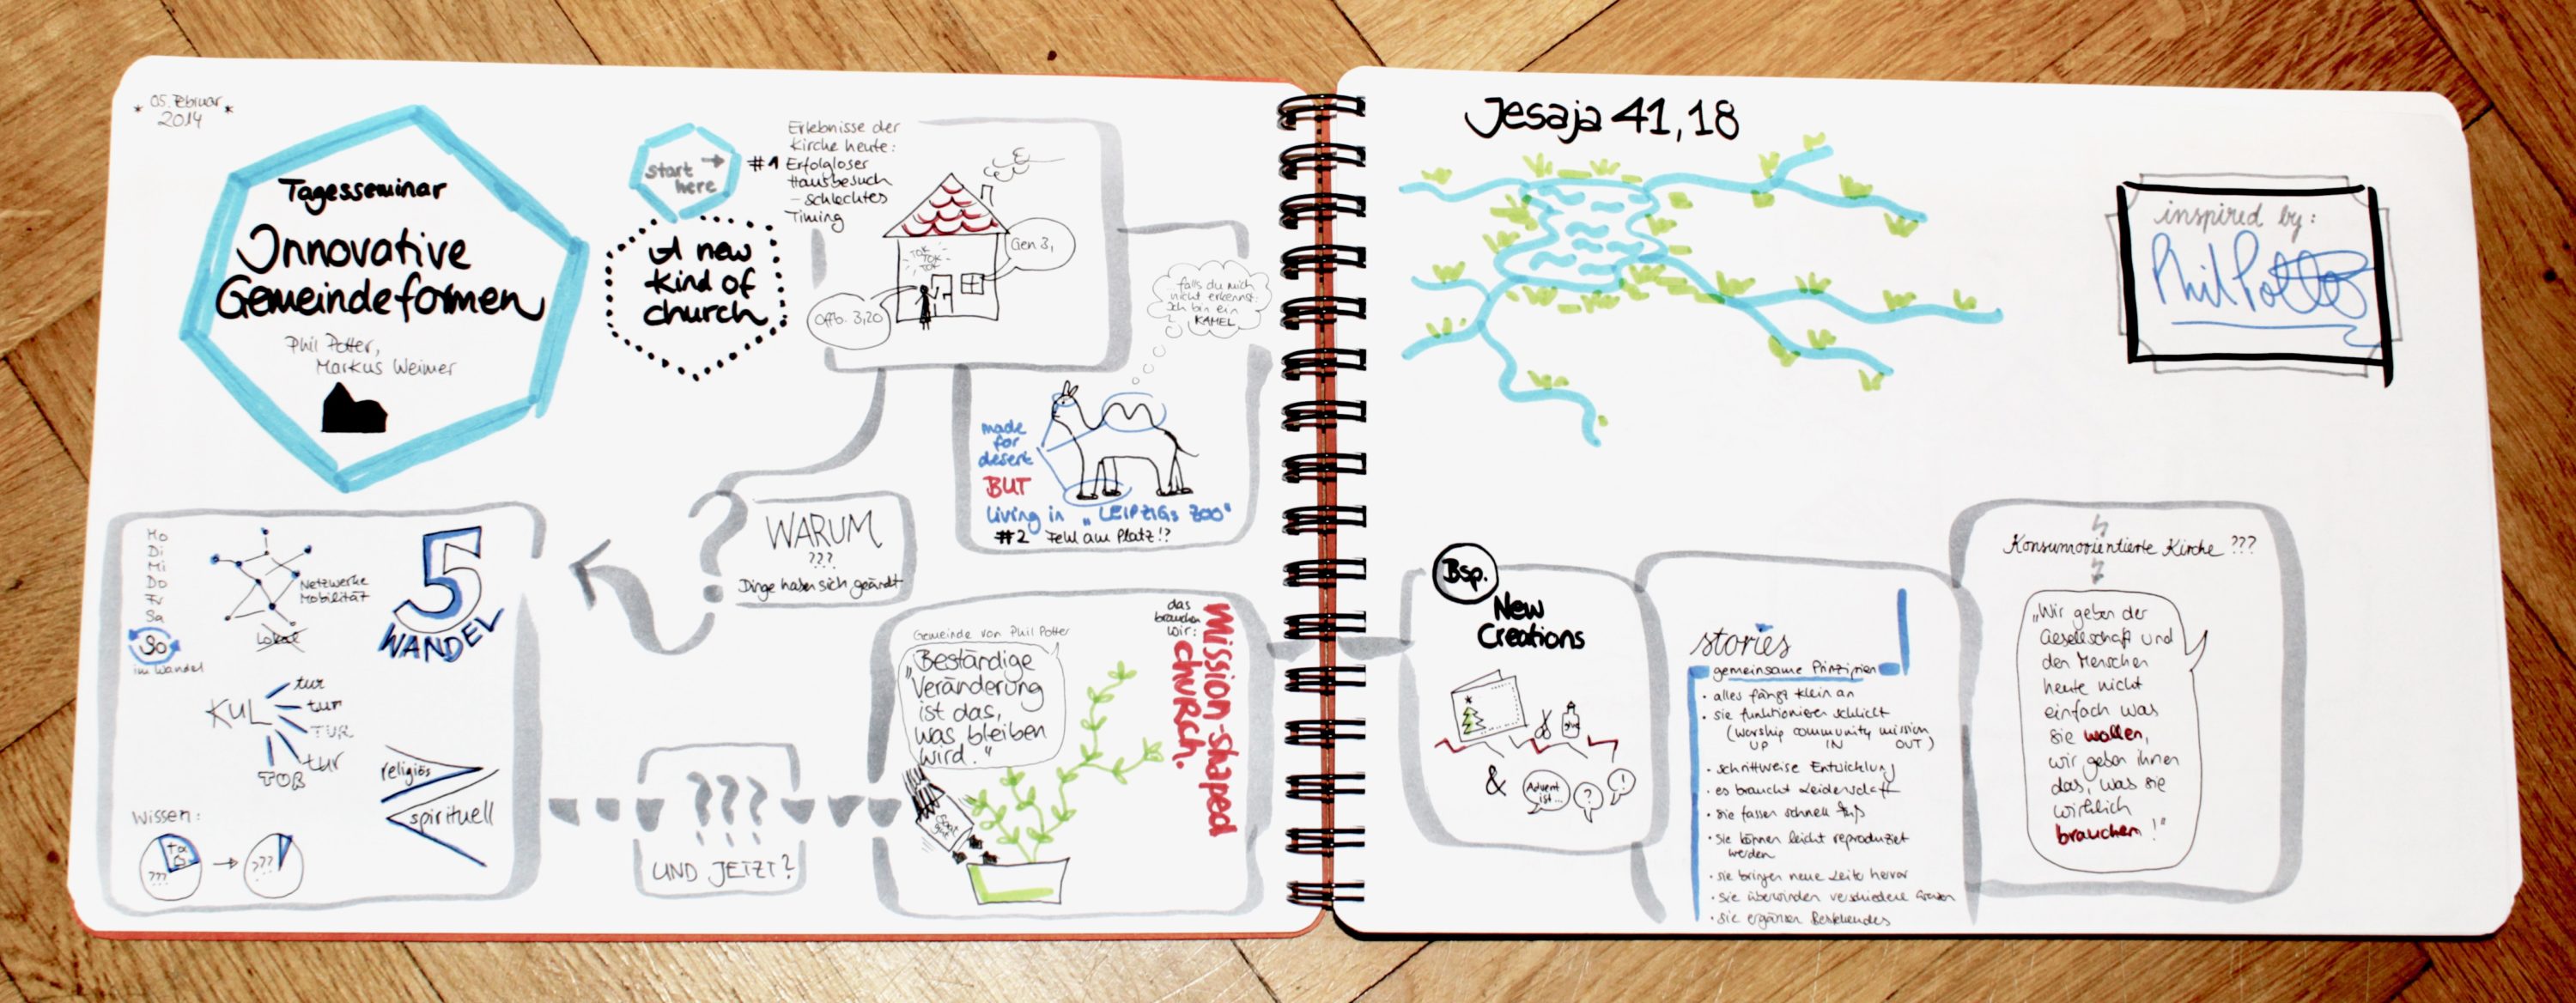 * 05. Februar *
2014
Tagesseminar
Innovative
Gemeindeformen
Phil Potter,
Markus Weimer
start →
here
A new
kind of
church
#1
Erlebnisse der
Kirche heute:
Erfolgloser
Hausbesuch
- schlechtes
Timing
TOK
TOK
TOK
Gen 3,
Offb. 3,20
...falls du mich
nicht erkennst:
Ich bin ein
KAMEL
made
for
desert
BUT
living in "LEIPZIGs ZOO"
#2 Fehl am Platz!?
?
WARUM
???
Dinge haben sich geändert
Mo
Di
Mi
Do
Fr
Sa
So
im Wandel
Netzwerke
Mobilität
Lokal
5
WANDEL
KUL
tur
tur
TUR
tur
TOR
religiös
spirituell
Wissen:
???
→
???
???
UND JETZT?
Gemeinde von Phil Potter
"Beständige
Veränderung
ist das,
was bleiben
wird."
das
brauchen
wir:
Mission-shaped
church.
Jesaja 41,18
inspired by:
Phil Potter
Bsp.
New
Creations
&
Advent
ist...
?
!
stories
gemeinsame Prinzipien
· alles fängt klein an
· sie funktionieren schlicht
(worship community mission
UP IN OUT)
· schrittweise Entwicklung
· es braucht Leidenschaft
· sie fassen schnell Fuß
· sie können leicht reproduziert
werden
· sie bringen neue Leite hervor
· sie überwinden verschiedene Grenzen
· sie ergänzen Bestehendes
Konsumorientierte Kirche ???
"Wir geben der
Gesellschaft und
den Menschen
heute nicht
einfach was
sie wollen,
wir geben ihnen
das, was sie
wirklich
brauchen!"